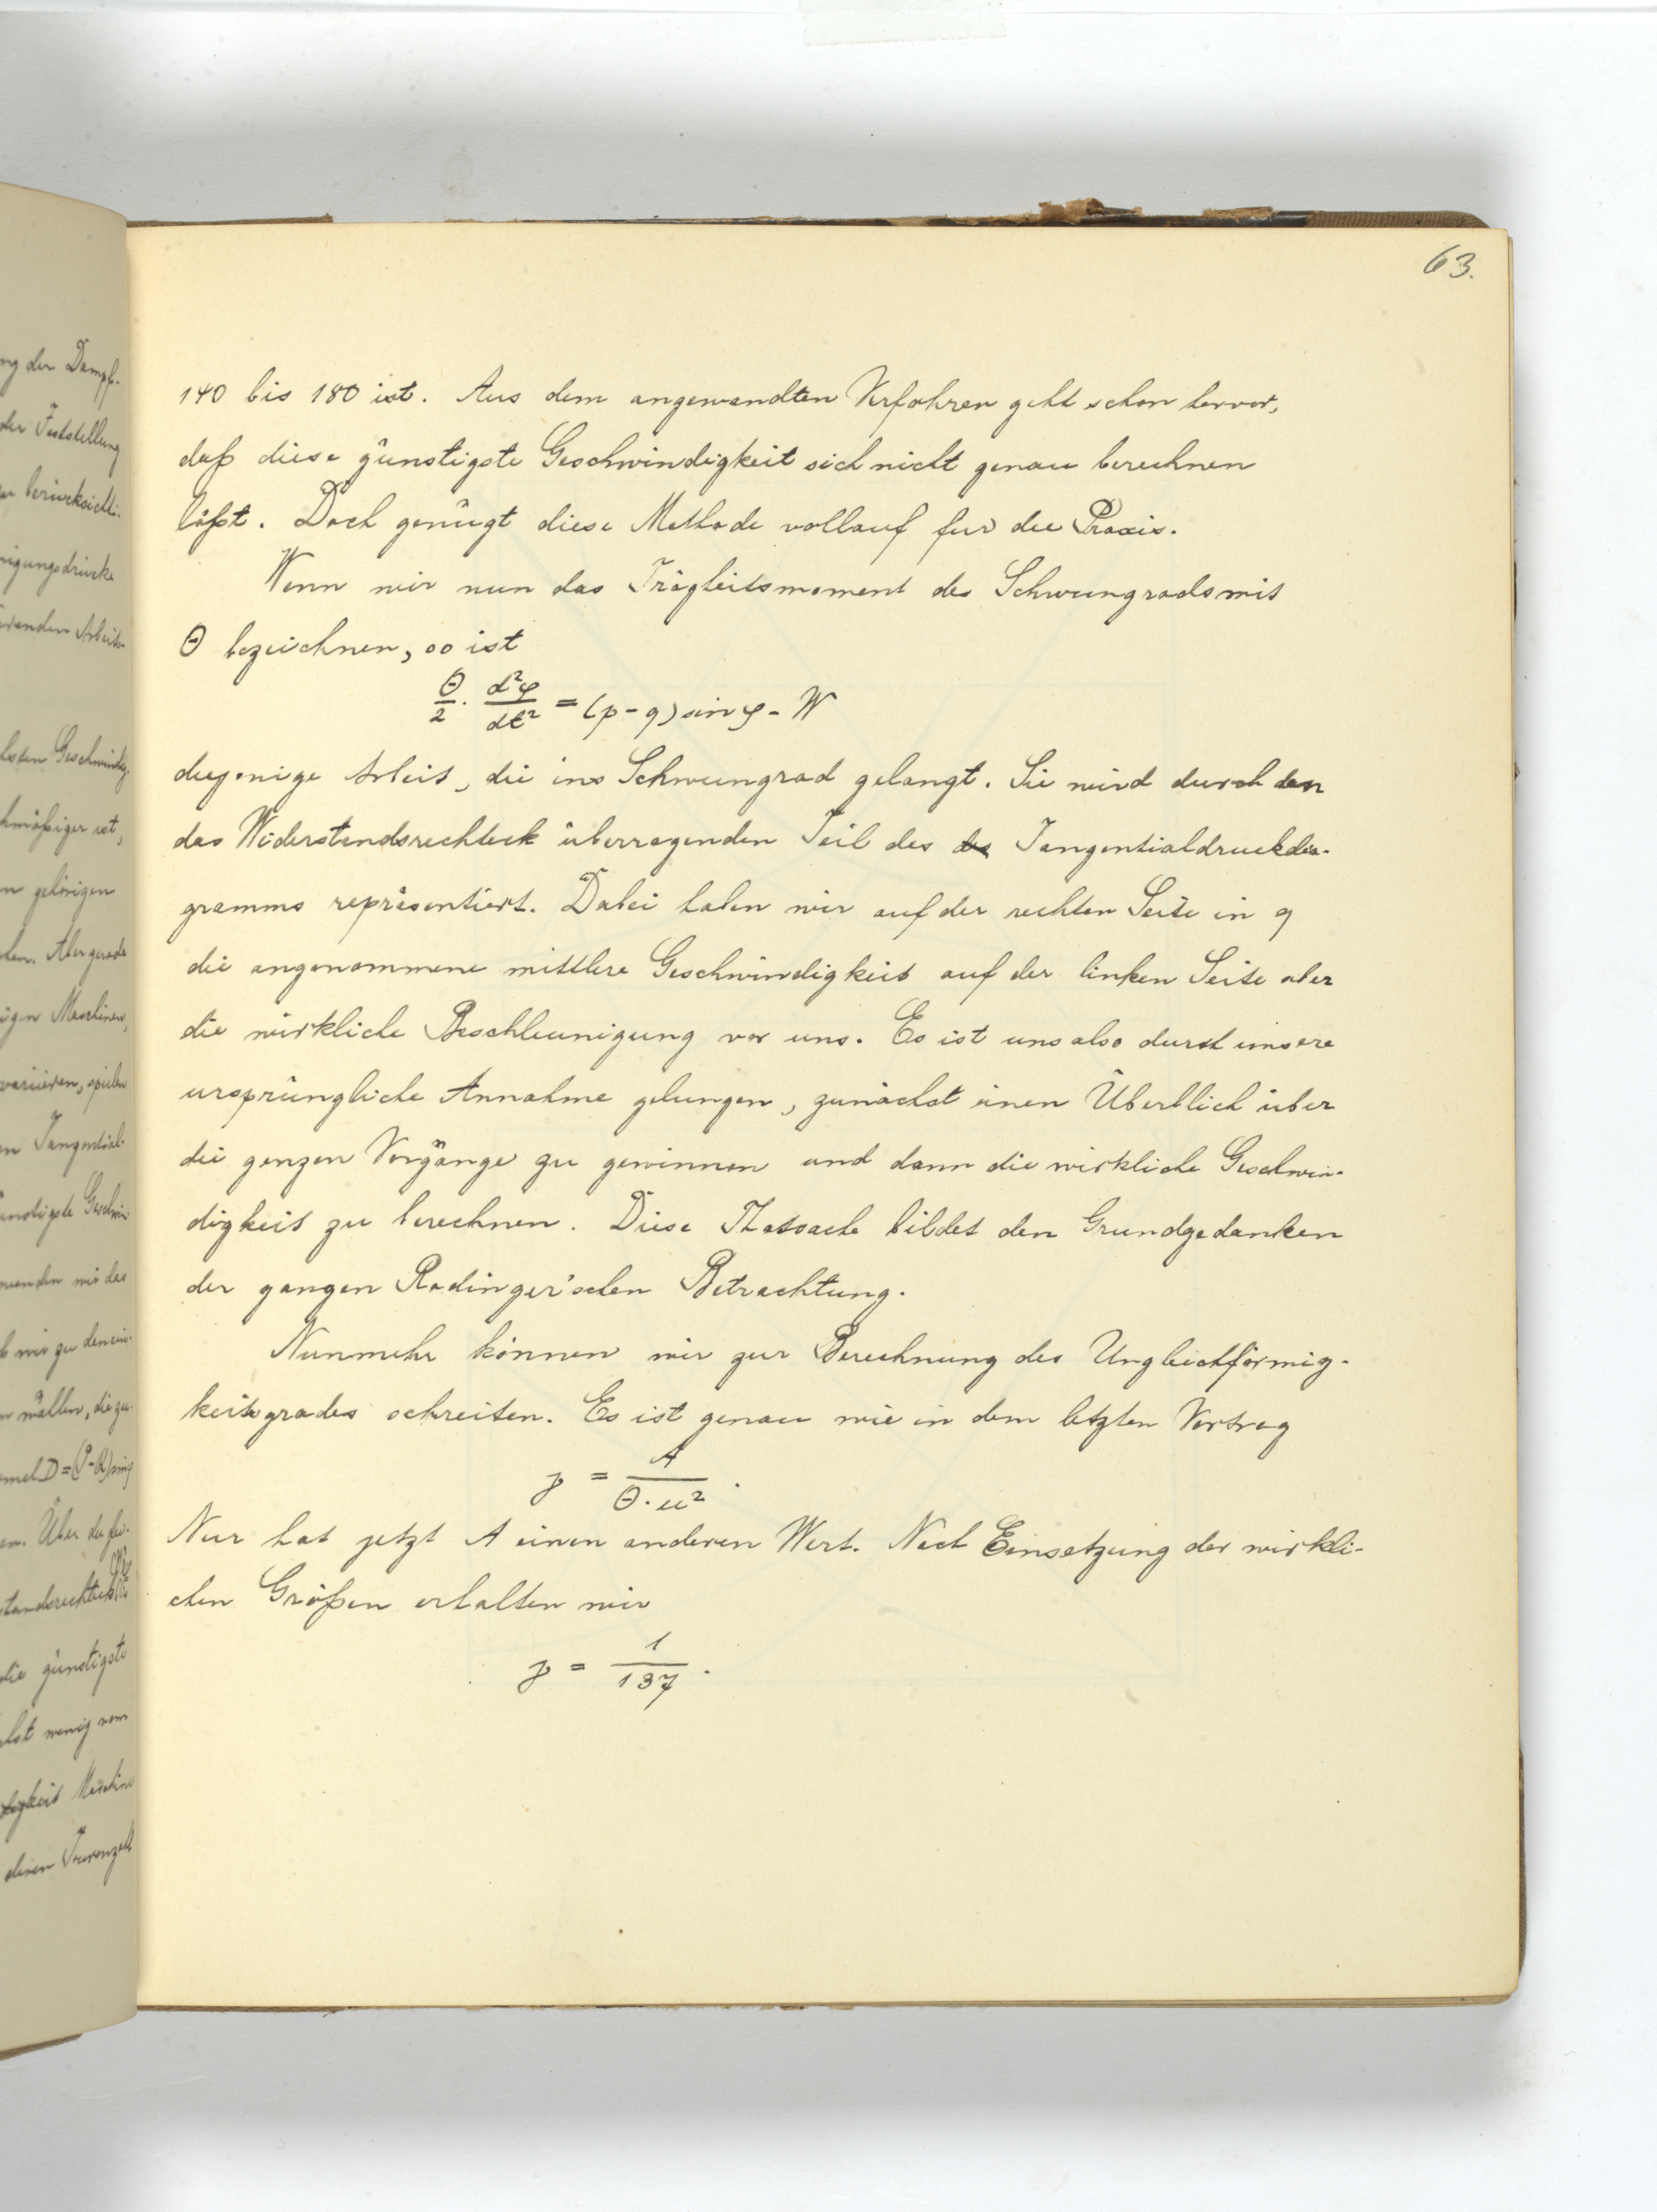 63.
ng der Dampf-
der Feststellung
zu berücksichti-
nigungsdrucke
renden Arbeits-
kmäßiger ist,
n gehörigen
den. Aber gerade
igen Maschinen,
variieren, spielen
en Tangential-
ünstigste Geschwin-
wenden wir das
b wir zu dem ein-
n wollen, die zu
rmel D = (P-Q) sin φ
die günstigste
bst wenig vom
deren Tourenzahl
140 bis 180 ist. Aus dem angewandten Verfahren geht schon hervor,
daß diese günstigste Geschwindigkeit sich nicht genau berechnen
läßt. Doch genügt diese Methode vollauf fur die Praxis.
Wenn wir nun das Trägheitsmoment des Schwungrads mit
Θ bezeichnen, so ist
Θ/2 · d²φ/dt² = (p - q) sin φ - W
diejenige Arbeit, die ins Schwungrad gelangt. Sie wird durch den
das Widerstandsrechteck überragenden Teil des des Tangentialdruckdia-
gramms repräsentiert. Dabei haben wir auf der rechten Seite in q
die angenommene mittlere Geschwindigkeit auf der linken Seite aber
die wirkliche Beschleunigung vor uns. Es ist uns also durch unsere
ursprüngliche Annahme gelungen, zunächst einen Überblick über
die ganzen Vorgänge zu gewinnen und dann die wirkliche Geschwin-
digkeit zu berechnen. Diese Thatsache bildet den Grundgedanken
der ganzen Radinger'schen Betrachtung.
Nunmehr können wir zur Berechnung des Ungleichförmig-
keitsgrades schreiten. Es ist genau wie in dem letzten Vortrag
γ = A/Θ·u² .
Nur hat jetzt A einen anderen Wert. Nach Einsetzung der wirkli-
chen Größen erhalten wir
γ = 1/137 .